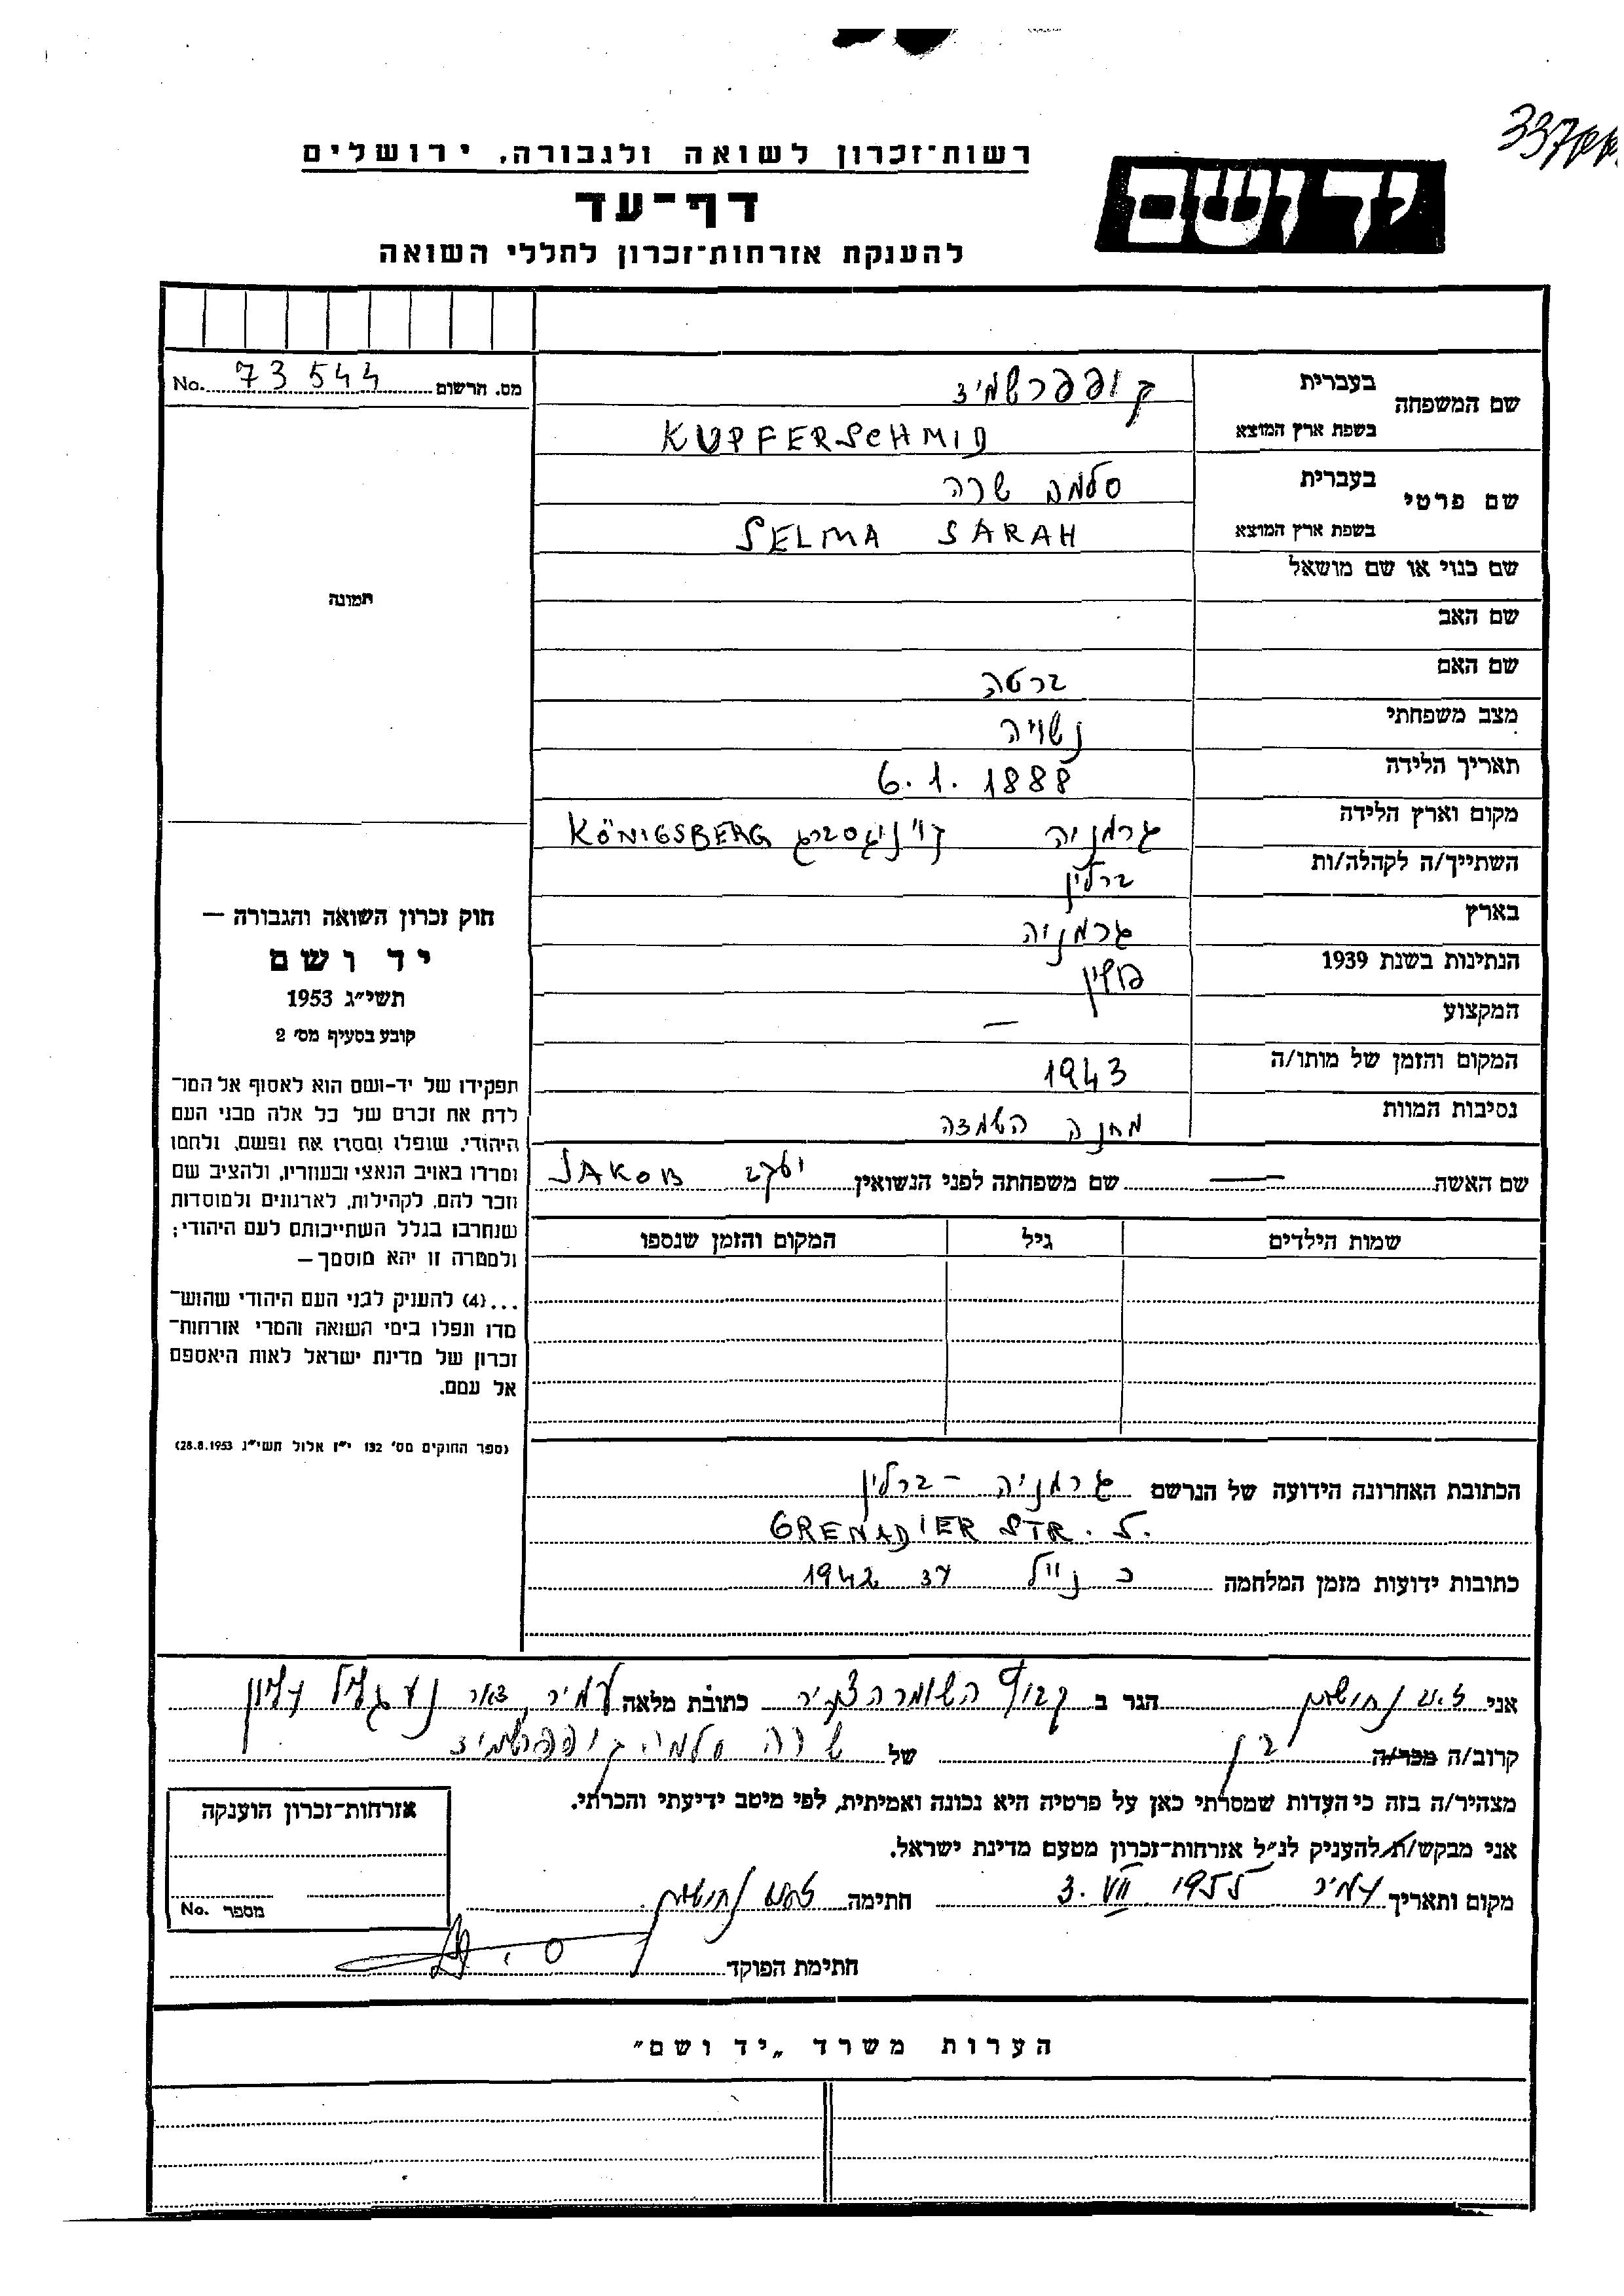 רשות־זכרון לשואה ולגבורה, ירושלים
דף־עד
להענקת אזרחות־זכרון לחללי השואה
יד ושם
מס. הרשום 73544 No.
שם המשפחה
בעברית קופפרשמיד
בשפת ארץ המוצא KUPFERSCHMID
שם פרטי
בעברית סלמה שרה
בשפת ארץ המוצא SELMA SARAH
שם כנוי או שם מושאל
שם האב
שם האם ברטה
מצב משפחתי נשויה
תאריך הלידה 6.1.1888
מקום וארץ הלידה גרמניה קניגסברג KÖNIGSBERG
השתייך/ה לקהלה/ות ברלין
בארץ גרמניה
הנתינות בשנת 1939 פולין
המקצוע —
המקום והזמן של מותו/ה 1943
נסיבות המוות מחנה השמדה
שם האשה — שם משפחתה לפני הנשואין יעקב JAKOB
שמות הילדים גיל המקום והזמן שנספו
הכתובת האחרונה הידועה של הנרשם גרמניה - ברלין
GRENADIER STR. 5.
כתובות ידועות מזמן המלחמה כנ"ל עד 1942
תמונה
חוק זכרון השואה והגבורה —
יד ושם
תשי״ג 1953
קובע בסעיף מס׳ 2
תפקידו של יד־ושם הוא לאסוף אל המו־
לדת את זכרם של כל אלה מבני העם
היהודי, שנפלו ומסרו את נפשם, נלחמו
ומרדו באויב הנאצי ובעוזריו, ולהציב שם
וזכר להם, לקהילות, לארגונים ולמוסדות
שנחרבו בגלל השתייכותם לעם היהודי;
ולמטרה זו יהא מוסמך—
...(4) להעניק לבני העם היהודי שהוש־
מדו ונפלו בימי השואה והמרי אזרחות־
זכרון של מדינת ישראל לאות היאספם
אל עמם.
(ספר החוקים מס׳ 132 י״ז אלול תשי״ג 28.8.1953)
אני הגר ב קבוץ השומר הצעיר כתובת מלאה עמיר, דאר נע גליל עליון
קרוב/ה מכר/ה בן של שרה סלמה קופפרשמיד
מצהיר/ה בזה כי העדות שמסרתי כאן על פרטיה היא נכונה ואמיתית, לפי מיטב ידיעתי והכרתי.
אני מבקש/ת להעניק לנ״ל אזרחות־זכרון מטעם מדינת ישראל.
מקום ותאריך עמיר 3. VII 1955 חתימה
חתימת הפוקד
אזרחות־זכרון הוענקה
מספר No.
הערות משרד „יד ושם״